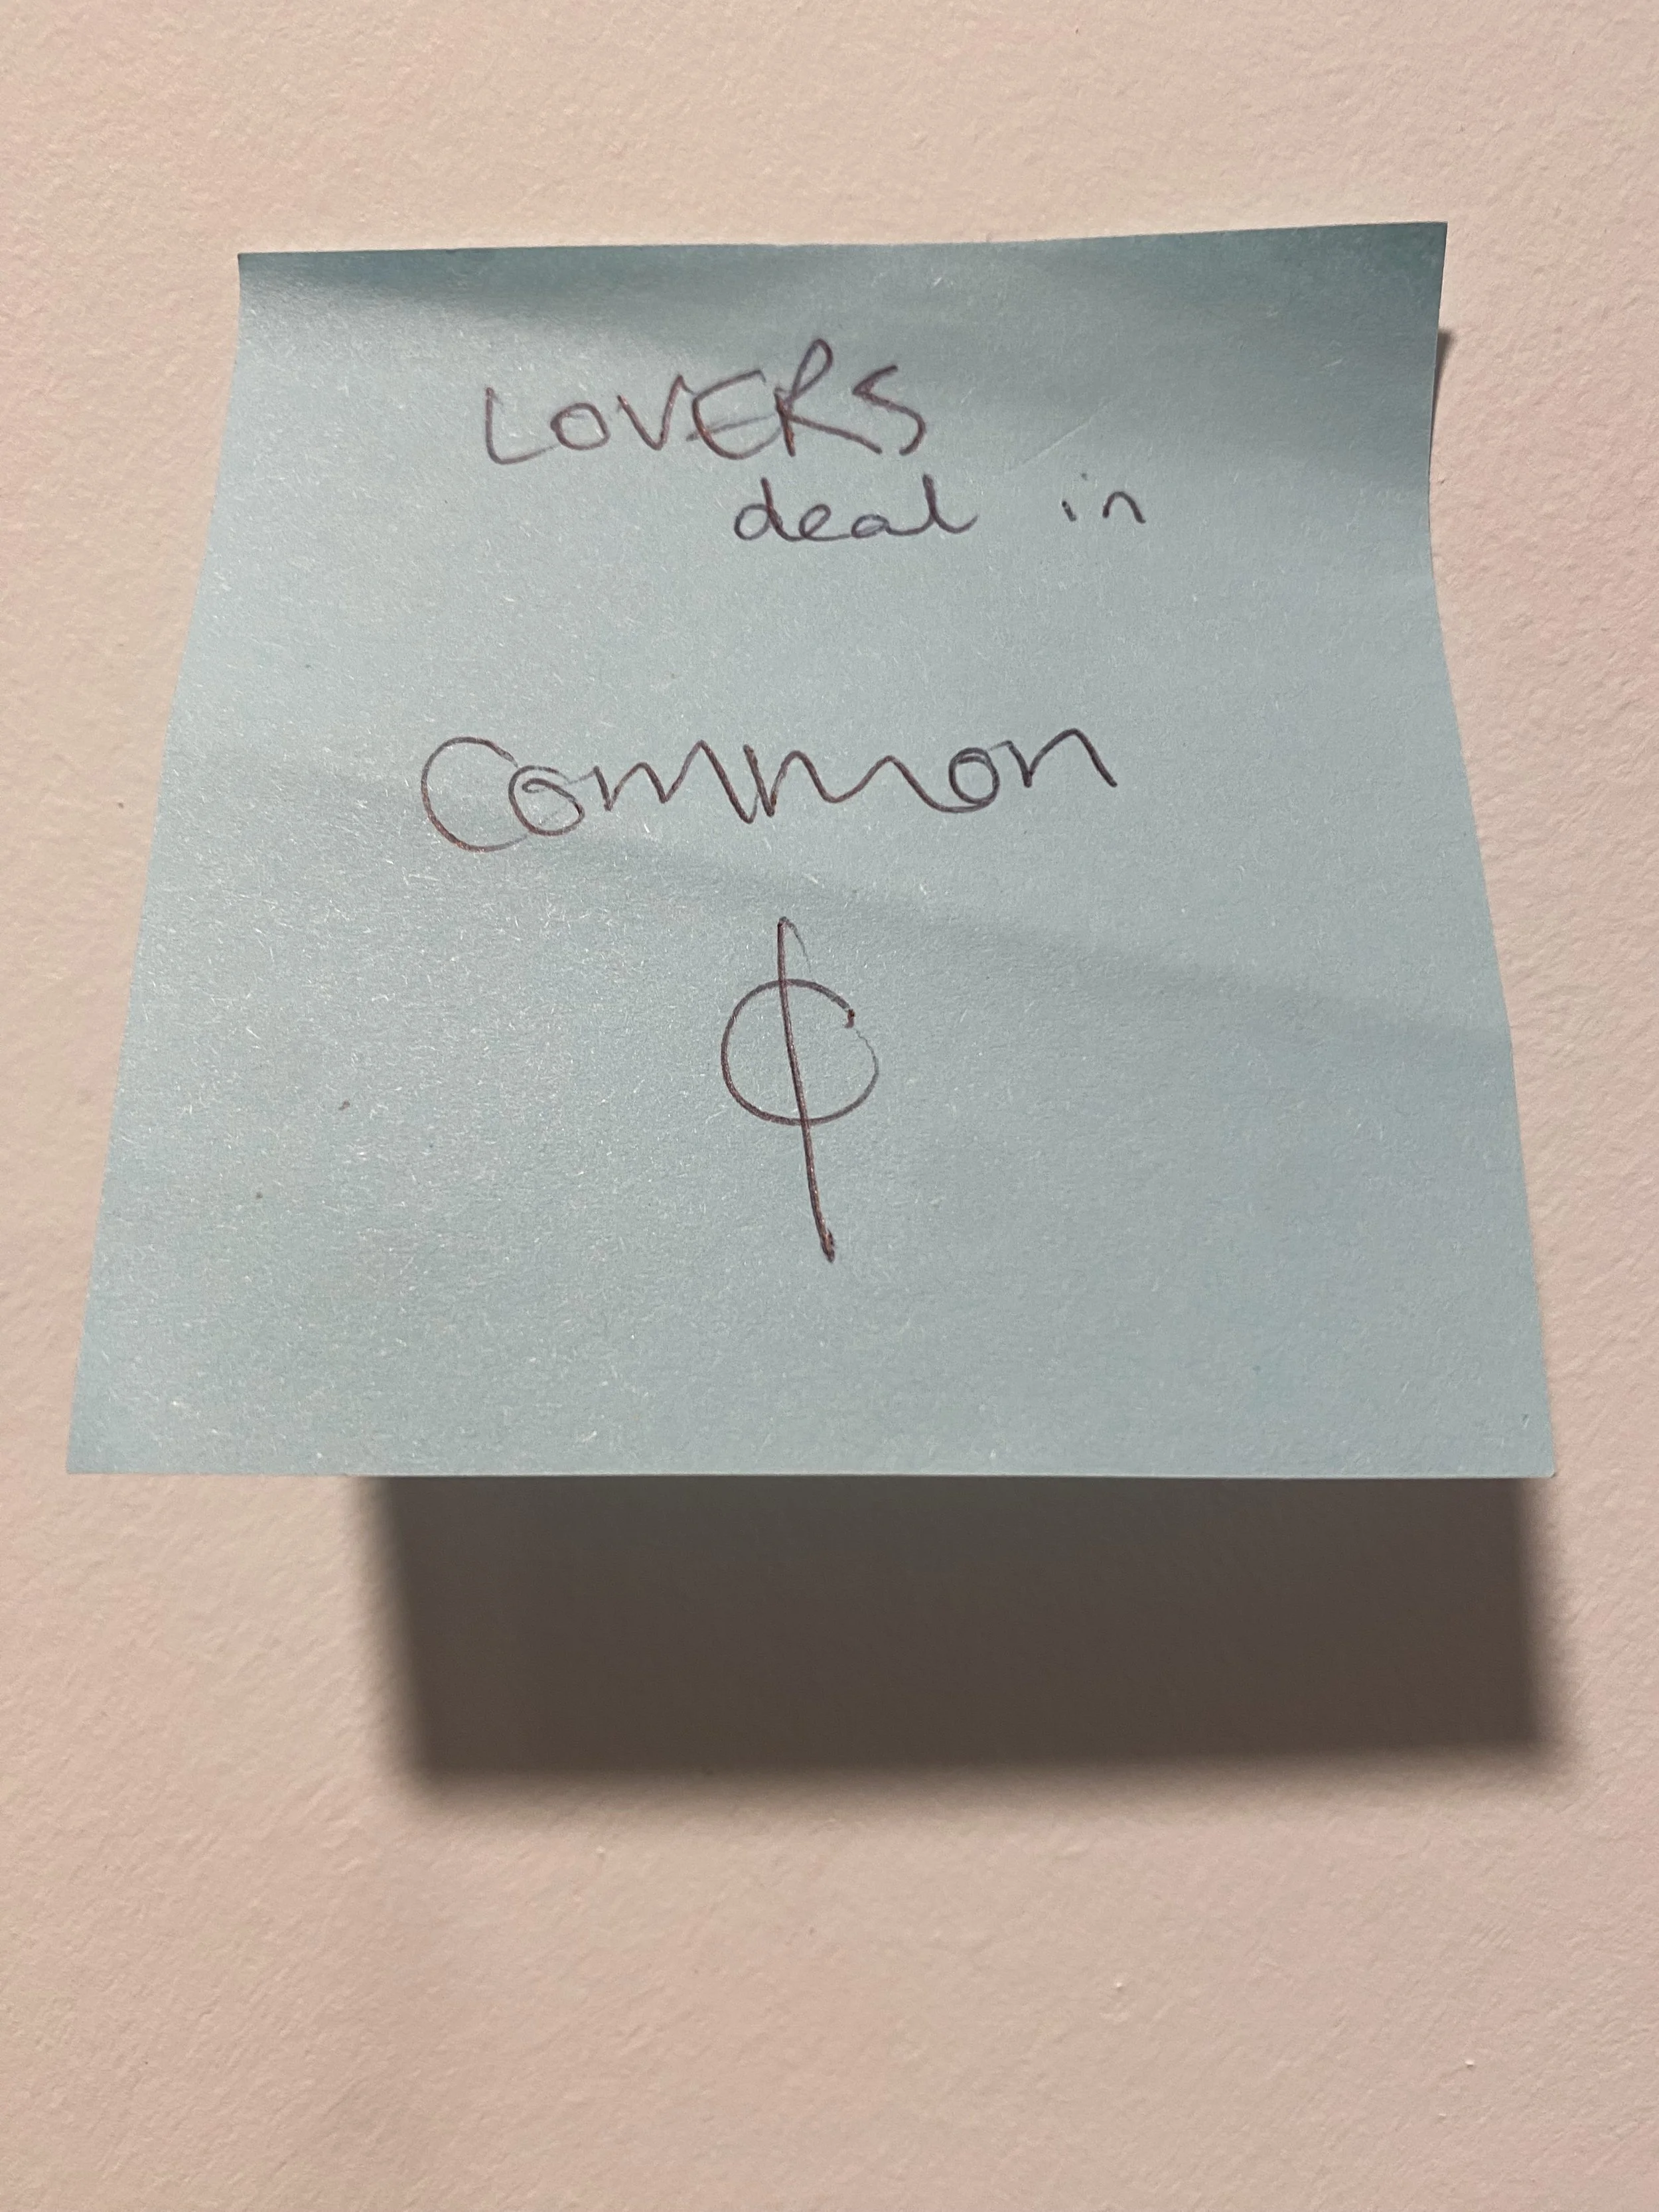 LOVERS
deal in
Common
¢